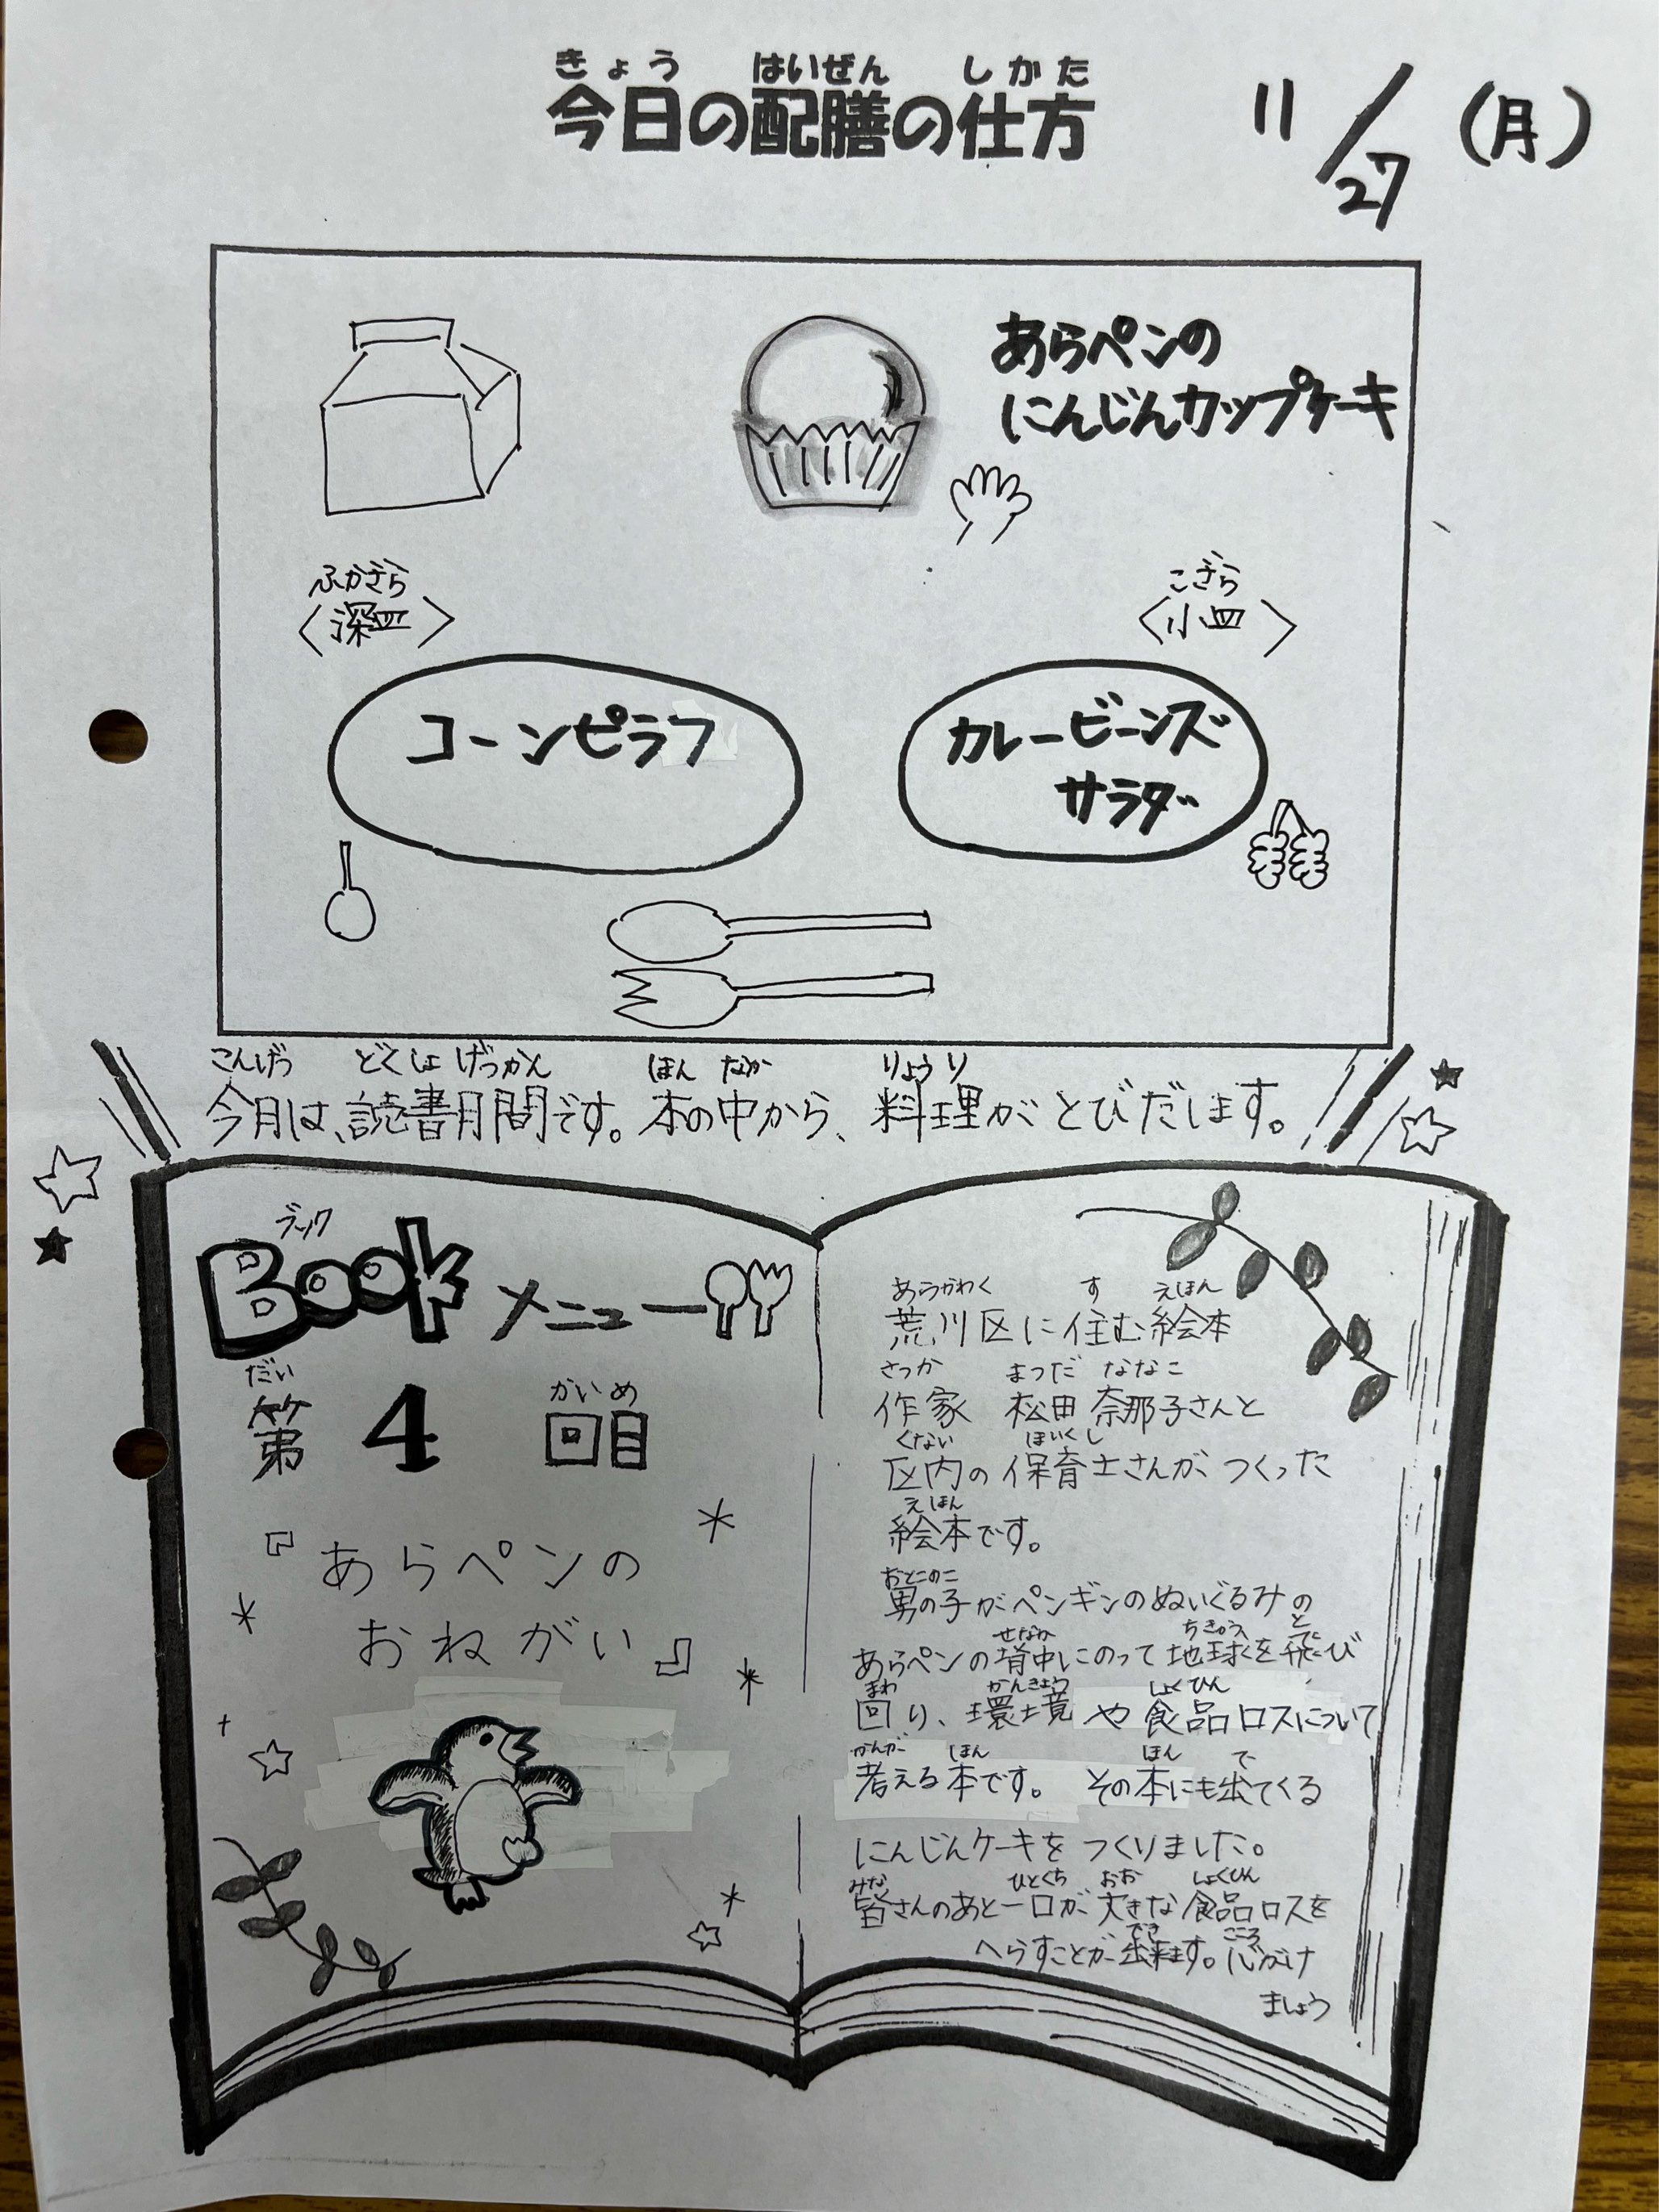 きょう はいぜん しかた
今日の配膳の仕方
11/27(月)
あらペンの
にんじんカップケーキ
ふかざら
〈深皿〉
こざら
〈小皿〉
コーンピラフ
カレービーンズ
サラダ
こんげつ どくしょ げっかん ほん なか りょうり
今月は、読書月間です。本の中から、料理がとびだします。
ブック
Bookメニュー
だい かいめ
第4回目
『あらペンの
おねがい』
あらかわく す えほん
荒川区に住む絵本
さっか まつだ ななこ
作家 松田 奈那子さんと
くない ほいくし
区内の保育士さんが、つくった
えほん
絵本です。
おとこのこ
男の子がペンギンのぬいぐるみの
せなか ちきゅう と
あらペンの背中にのって地球を飛び
まわ かんきょう しょくひん
回り、環境や食品ロスについて
かんが ほん ほん で
考える本です。 その本にも出てくる
にんじんケーキをつくりました。
みな ひとくち おお しょくひん
皆さんのあと一口が、大きな食品ロスを
でき こころ
へらすことが出来ます。心がけ
ましょう